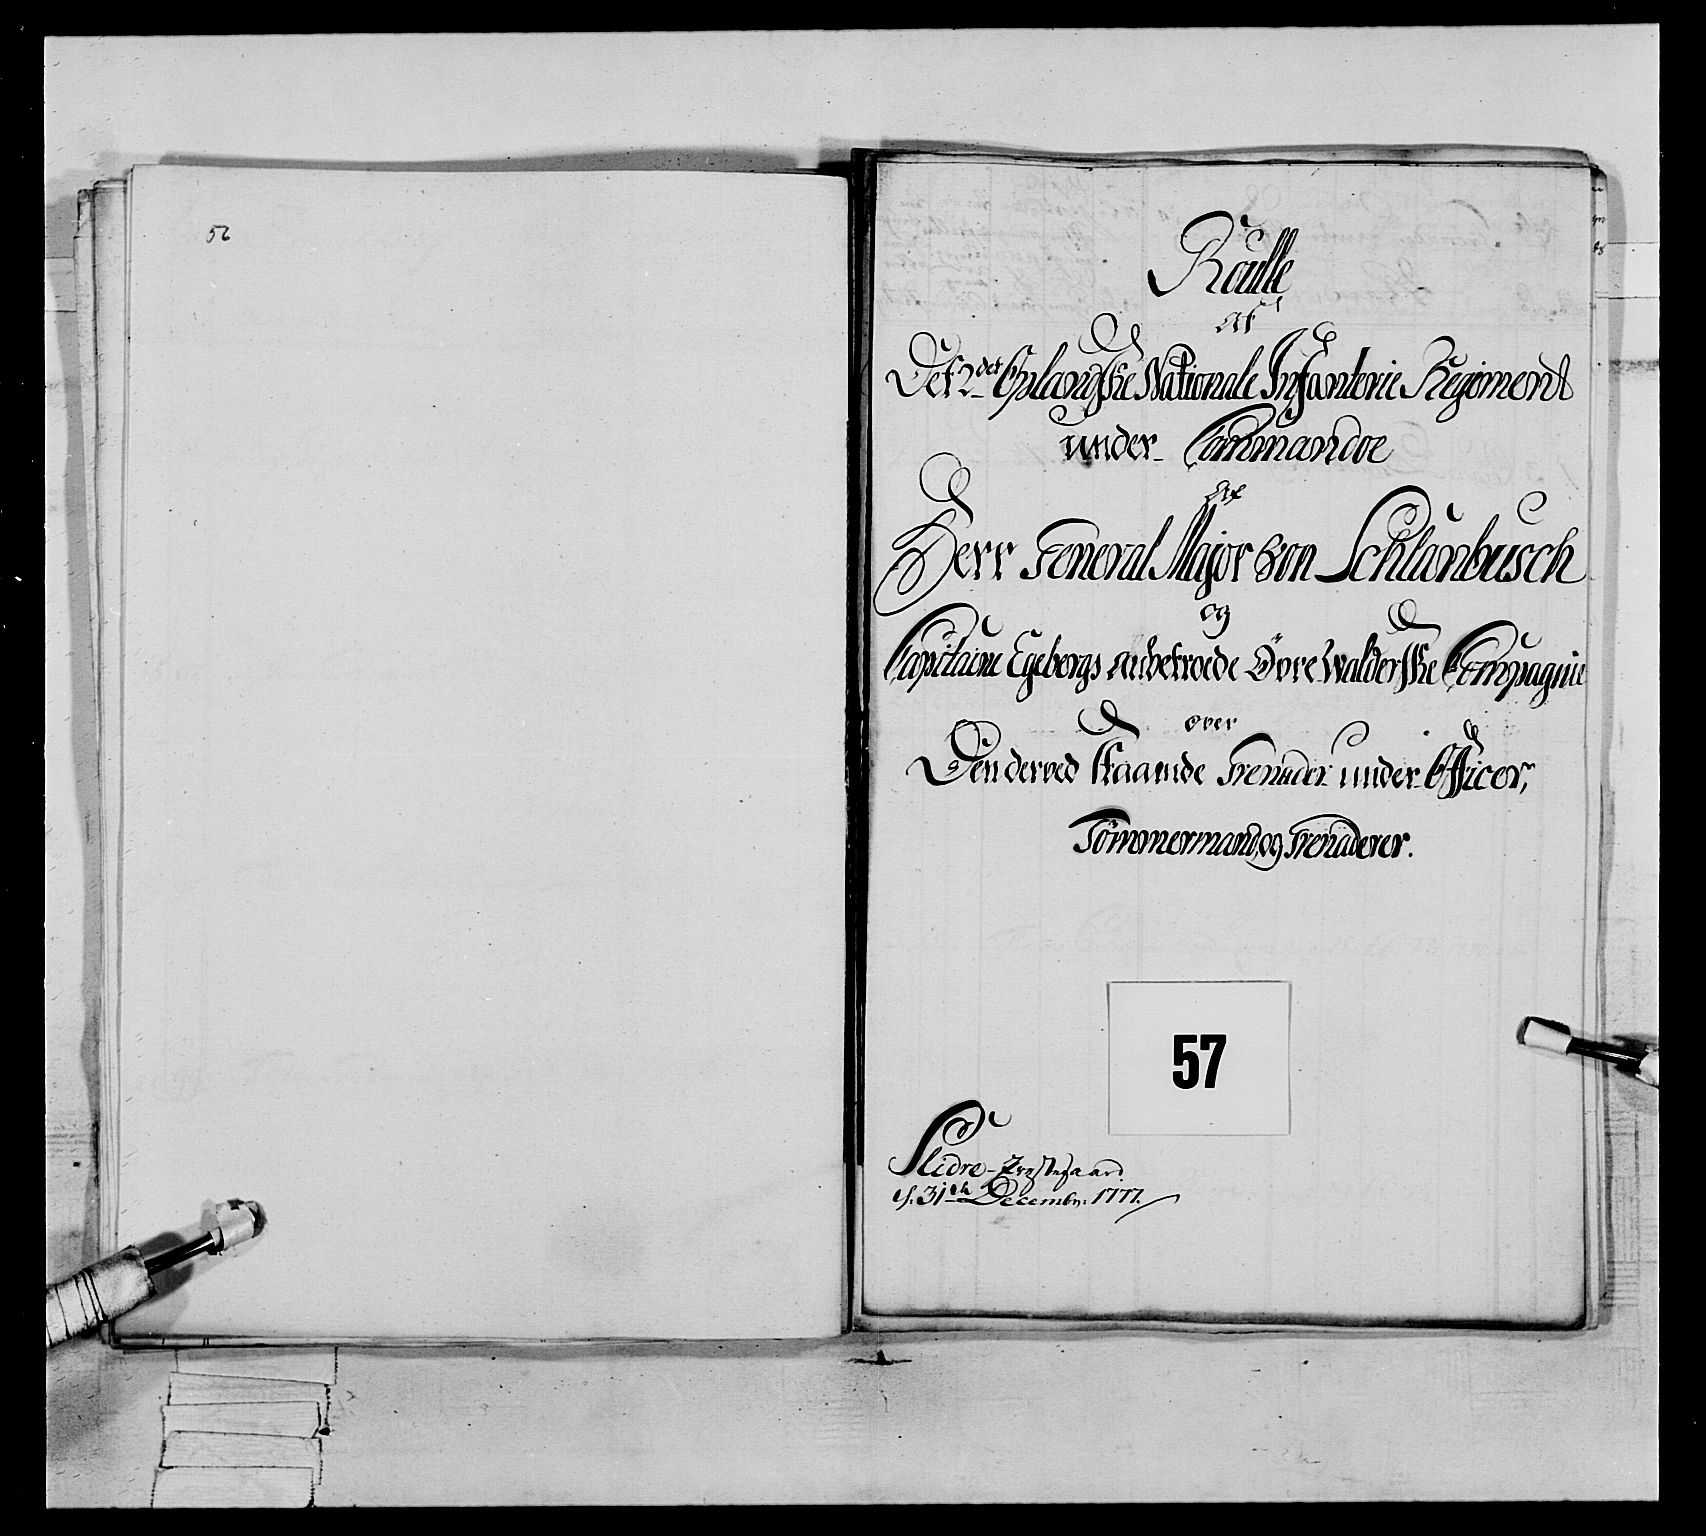 56
Roulle
Af
Det 2det Oplandske Nationale Infanterie Regiment
under Commandoe
Af
Herr General Major von Schlanbusch
og
Capitaine Egebergs anbetroede Øvre Walderske Compagnie
over
Den derved staaende Grenader under Officer,
Tømmermand, og Grenaderer.
57
Slidre
d. 31te Decembr: 1777.